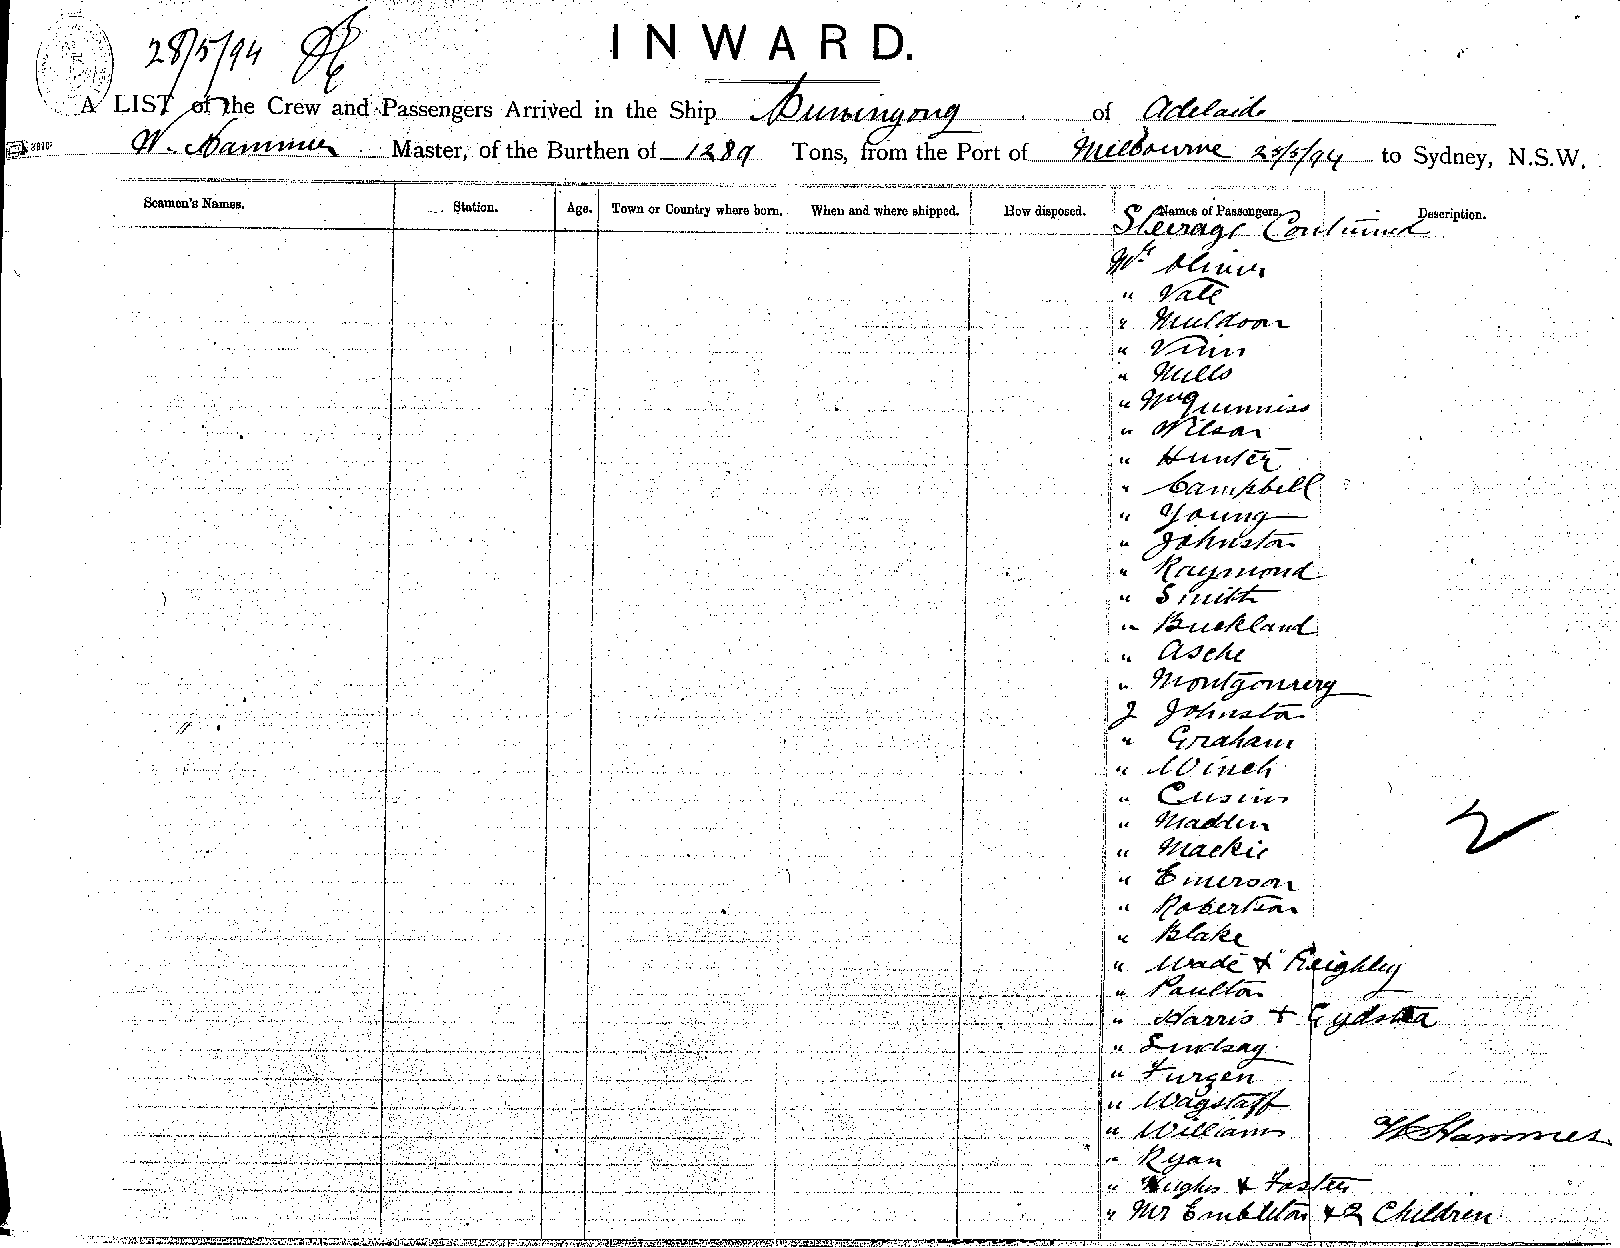 28/5/94
INWARD.
A LIST of the Crew and Passengers Arrived in the Ship Buninyong of Adelaide
W. Hammer Master, of the Burthen of 1289 Tons, from the Port of Melbourne 25/5/94 to Sydney, N.S.W.
Seamen's Names. Station. Age. Town or Country where born. When and where shipped. How disposed. Names of Passengers. Description.
Steerage Continued
Oliver
" Vale
" Muldoon
" Vinn
" Mills
" McGuinniss
" Wilson
" Hunter
" Campbell
" Young
" Johnston
" Raymond
" Smith
" Buckland
" Asche
" Montgomrery
J Johnston
" Graham
" Winch
" Cusins
" Madden
" Mackie
" Emerson
" Robertson
" Blake
" Wade & Keighley
" Poulton
" Harris +
" Lindsay
" Furgen
" Wagstaff
" Williams
W Hammer
" Ryan
" Hughes & Foster
" Mr Embleton & 2 Children